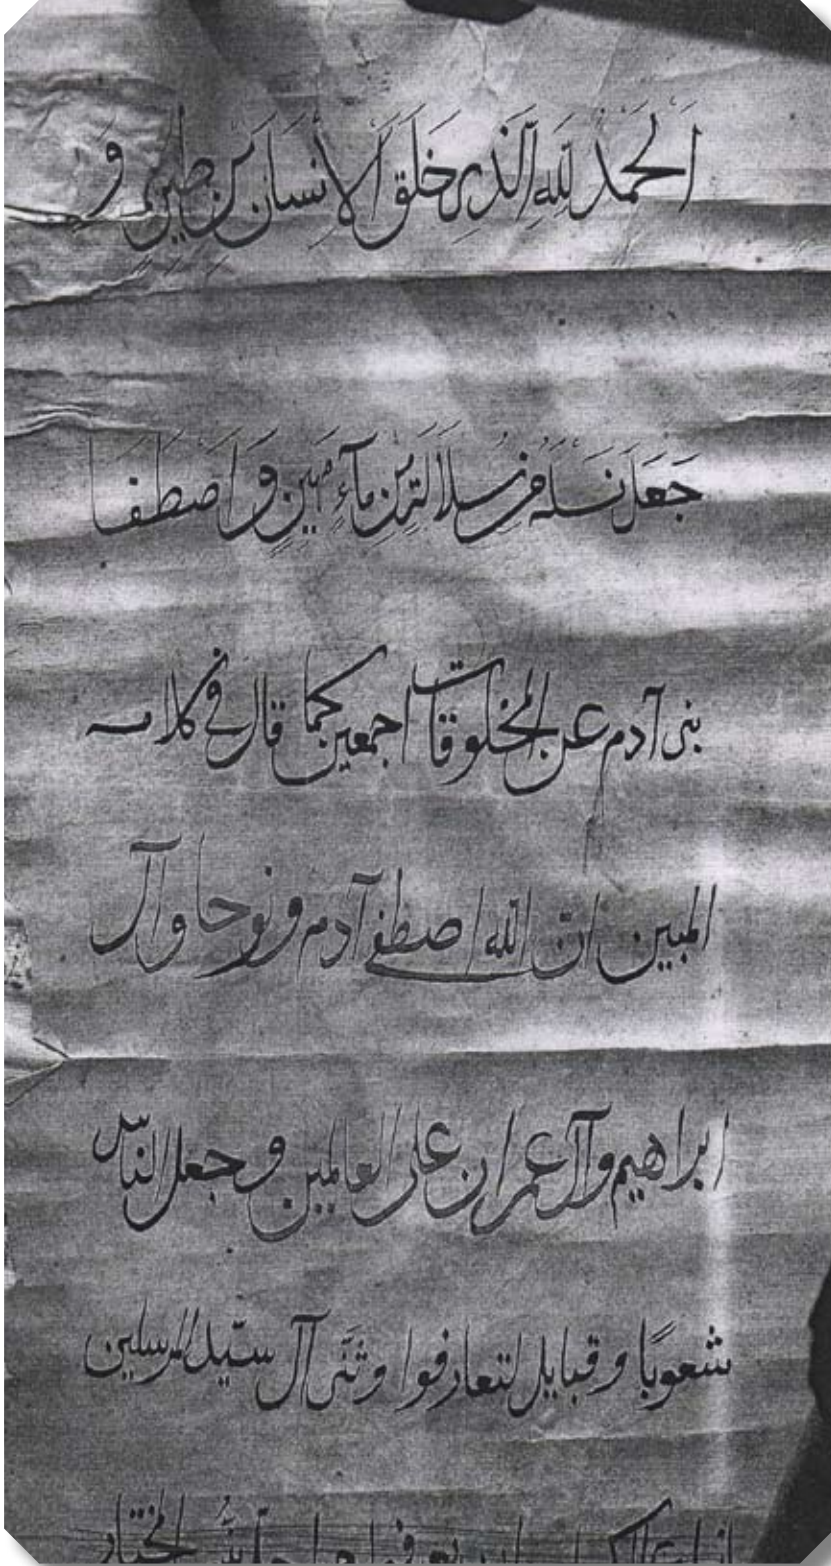 اَلْحَمْدُ لِلّٰهِ الَّذِي خَلَقَ الْاِنْسَانَ مِنْ طِينٍ وَ
جَعَلَ نَسْلَهُ مِنْ سُلَالَةٍ مِنْ مَآءٍ مَهِينٍ وَ اصْطَفَا
بنی آدم عن المخلوقات اجمعین کما قال فی کلامه
المبین ان الله اصطفی آدم و نوحا و آل
ابراهیم و آل عمران علی العالمین و جعل الناس
شعوبًا و قبایل لتعارفوا و ثنّی آل سیّد المرسلین